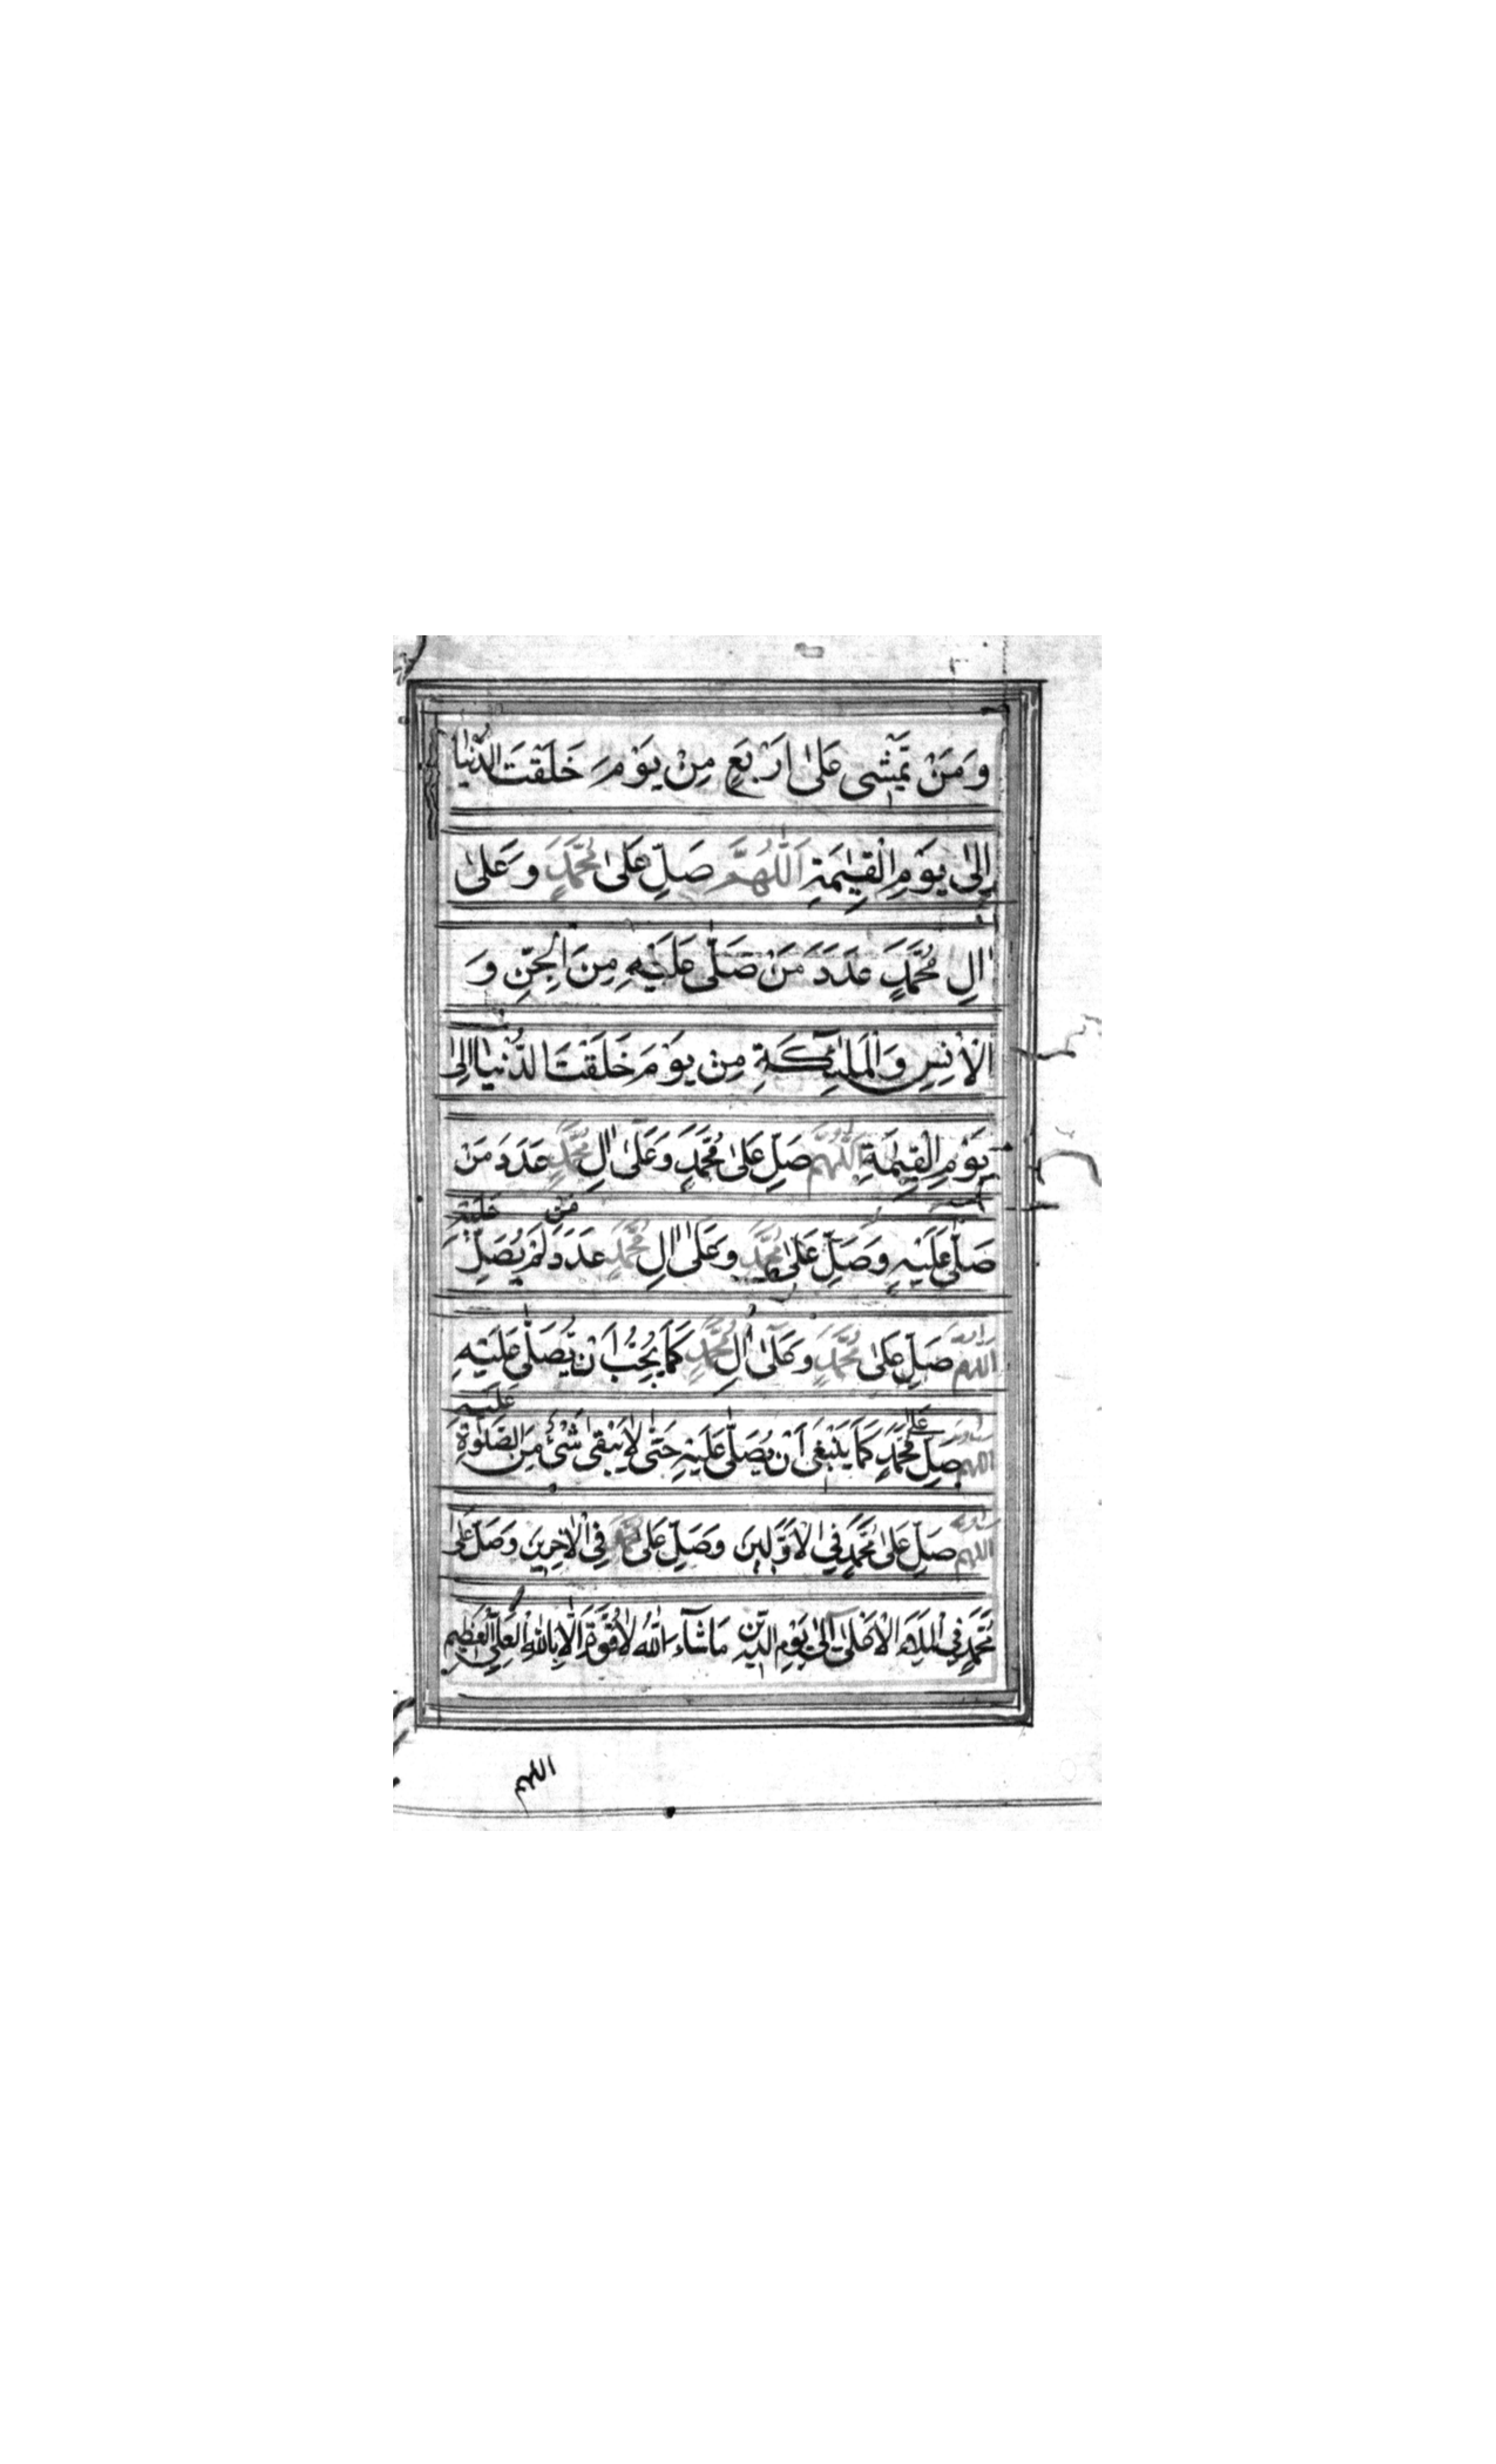 وَمَنْ تَمْشِى عَلٰى اَرْبَعٍ مِنْ يَوْمِ خَلَقْتَ الدُّنْيَا
اِلٰى يَوْمِ الْقِيٰمَةِ اَللّٰهُمَّ صَلِّ عَلٰى مُحَمَّدٍ وَعَلٰى
اٰلِ مُحَمَّدٍ عَدَدَ مَنْ صَلّٰى عَلَيْهِ مِنَ الْجِنِّ وَ
الْاِنْسِ وَالْمَلٰئِكَةِ مِنْ يَوْمَ خَلَقْتَ الدُّنْيَا اِلٰى
يَوْمِ الْقِيٰمَةِ اَللّٰهُمَّ صَلِّ عَلٰى مُحَمَّدٍ وَعَلٰى اٰلِ مُحَمَّدٍ عَدَدَ مَنْ
صَلّٰى عَلَيْهِ وَصَلِّ عَلٰى مُحَمَّدٍ وَعَلٰى اٰلِ مُحَمَّدٍ عَدَدَ مَنْ لَمْ يُصَلِّ عَلَيْهِ
اللهم صَلِّ عَلٰى مُحَمَّدٍ وَعَلٰى اٰلِ مُحَمَّدٍ كَمَا يُحِبُّ اَنْ يُّصَلّٰى عَلَيْهِ
اللهم صَلِّ عَلٰى مُحَمَّدٍ كَمَا يَنْبَغِى اَنْ يُصَلّٰى عَلَيْهِ حَتّٰى لَا يَبْقٰى شَئْءٌ مِنَ الصَّلٰوةِ عَلَيْهِ
اللهم صَلِّ عَلٰى مُحَمَّدٍ فِى الْاَوَّلِيْنَ وَصَلِّ عَلٰى مُحَمَّدٍ فِى الْاٰخِرِيْنَ وَصَلِّ عَلٰى
مُحَمَّدٍ فِى الْمَلَاءِ الْاَعْلٰى اِلٰى يَوْمِ الدِّيْنِ مَاشَآءَ اللّٰهُ لَا قُوَّةَ اِلَّا بِاللّٰهِ الْعَلِىِّ الْعَظِيْمِ
اللهم